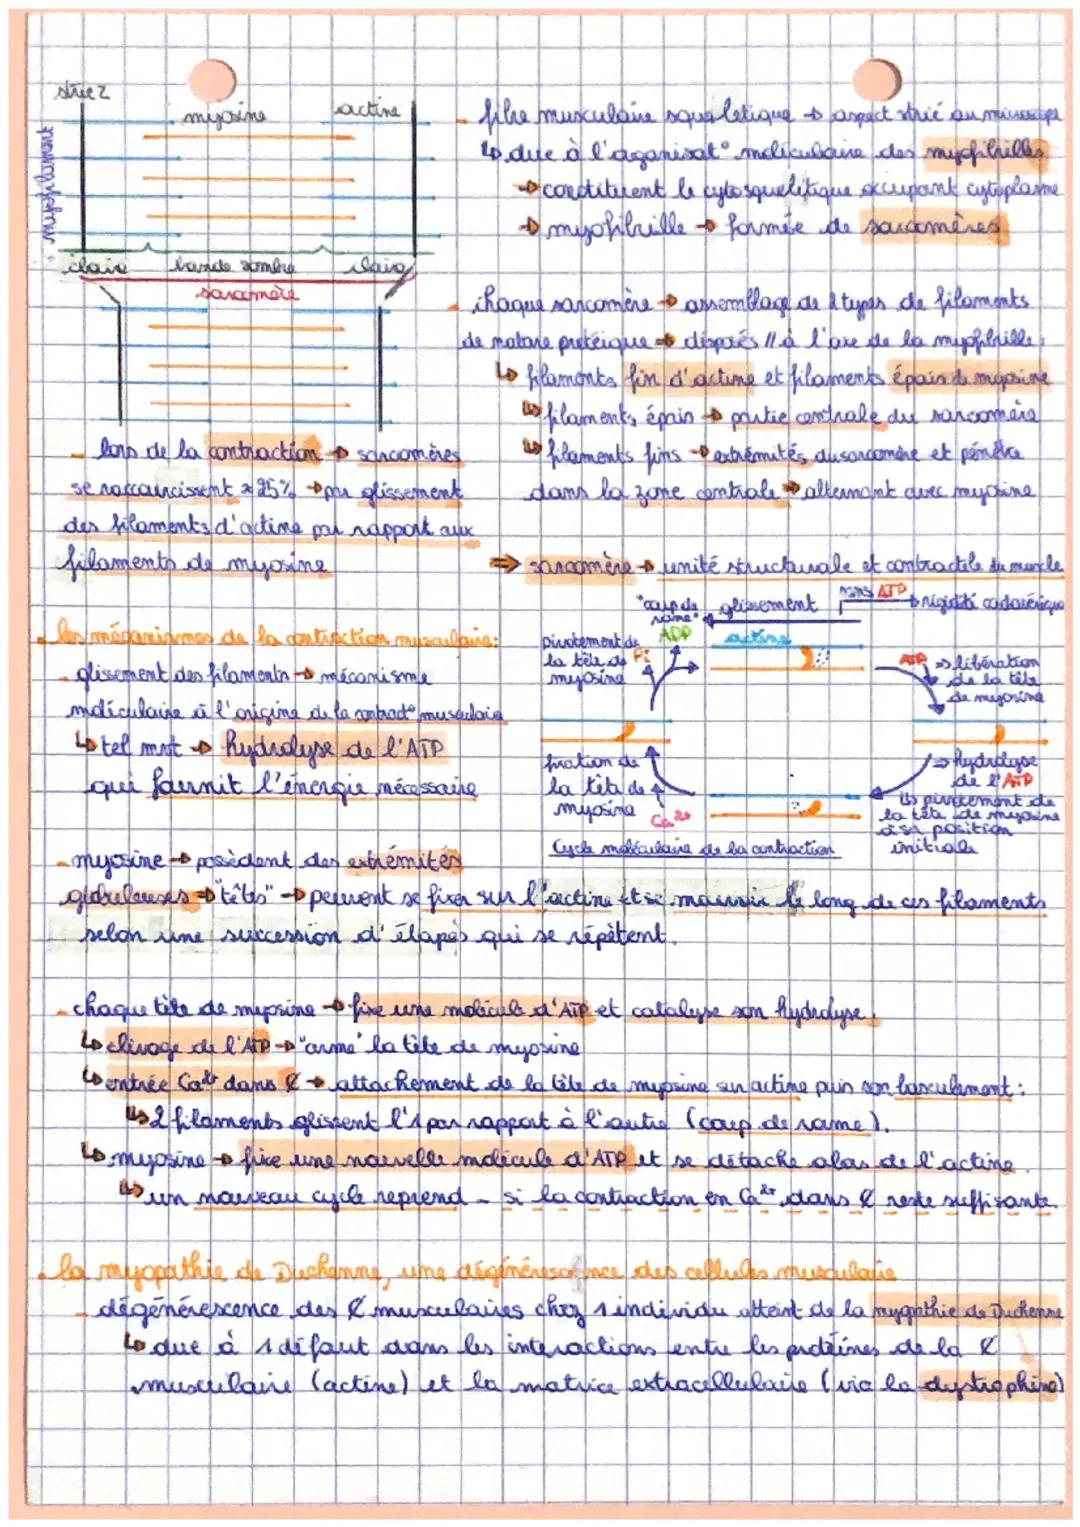 strie Z
myosine
actine
myofibrille
claire bande sombre claire
sarcomère
- fibre musculaire squeletique → aspect strié au microscope
↳ due à l'organisat° moléculaire des myofibrilles
→ constituent le cytosqueletique occupant cytoplasme
→ myofibrille → formée de sarcomères
- chaque sarcomère → assemblage de 2 types de filaments
de nature protéique → disposés // à l'axe de la myofibrille:
↳ filaments fin d'actine et filaments épais de myosine
↳ filaments épais → partie centrale du sarcomère
↳ filaments fins → extrémités du sarcomère et pénètre
dans la zone centrale → alternant avec myosine
- lors de la contraction → sarcomères
se raccourcissent ≈ 25% → par glissement
des filaments d'actine par rapport aux
filaments de myosine
⇒ sarcomère → unité structurale et contractile du muscle
• les mécanismes de la contraction musculaire:
- glissement des filaments → mécanisme
moléculaire à l'origine de la contract° musculaire
↳ tel mvt → hydrolyse de l'ATP
qui fournit l'énergie nécessaire
"coup de rame"
glissement
sans ATP
→ rigidité cadavérique
pivotement de
la tête de
myosine
ADP
Pi
actine
ATP
⇒ libération
de la tête
de myosine
⇒ hydrolyse
de l'ATP
↳ pivotement de
la tête de myosine
à sa position
initiale
fixation de
la tête de
myosine
Ca²⁺
Cycle moléculaire de la contraction
- myosine → possèdent des extrémités
globuleuses → "têtes" → peuvent se fixer sur l'actine et se mouvoir le long de ces filaments
selon une succession d'étapes qui se répètent.
- chaque tête de myosine → fixe une molécule d'ATP et catalyse son hydrolyse.
↳ clivage de l'ATP → "arme" la tête de myosine
↳ entrée Ca²⁺ dans ₵ → attachement de la tête de myosine sur actine puis son basculement:
↳ 2 filaments glissent l'1 par rapport à l'autre (coup de rame).
↳ myosine → fixe une nouvelle molécule d'ATP et se détache alors de l'actine.
↳ un nouveau cycle reprend - si la contraction en Ca²⁺ dans ₵ reste suffisante.
• la myopathie de Duchenne, une dégénéresence des cellules musculaire
- dégénérescence des ₵ musculaires chez 1 individu atteint de la myopathie de Duchenne
↳ due à 1 défaut dans les interactions entre les protéines de la ₵
musculaire (actine) et la matrice extracellulaire (via la dystrophine)